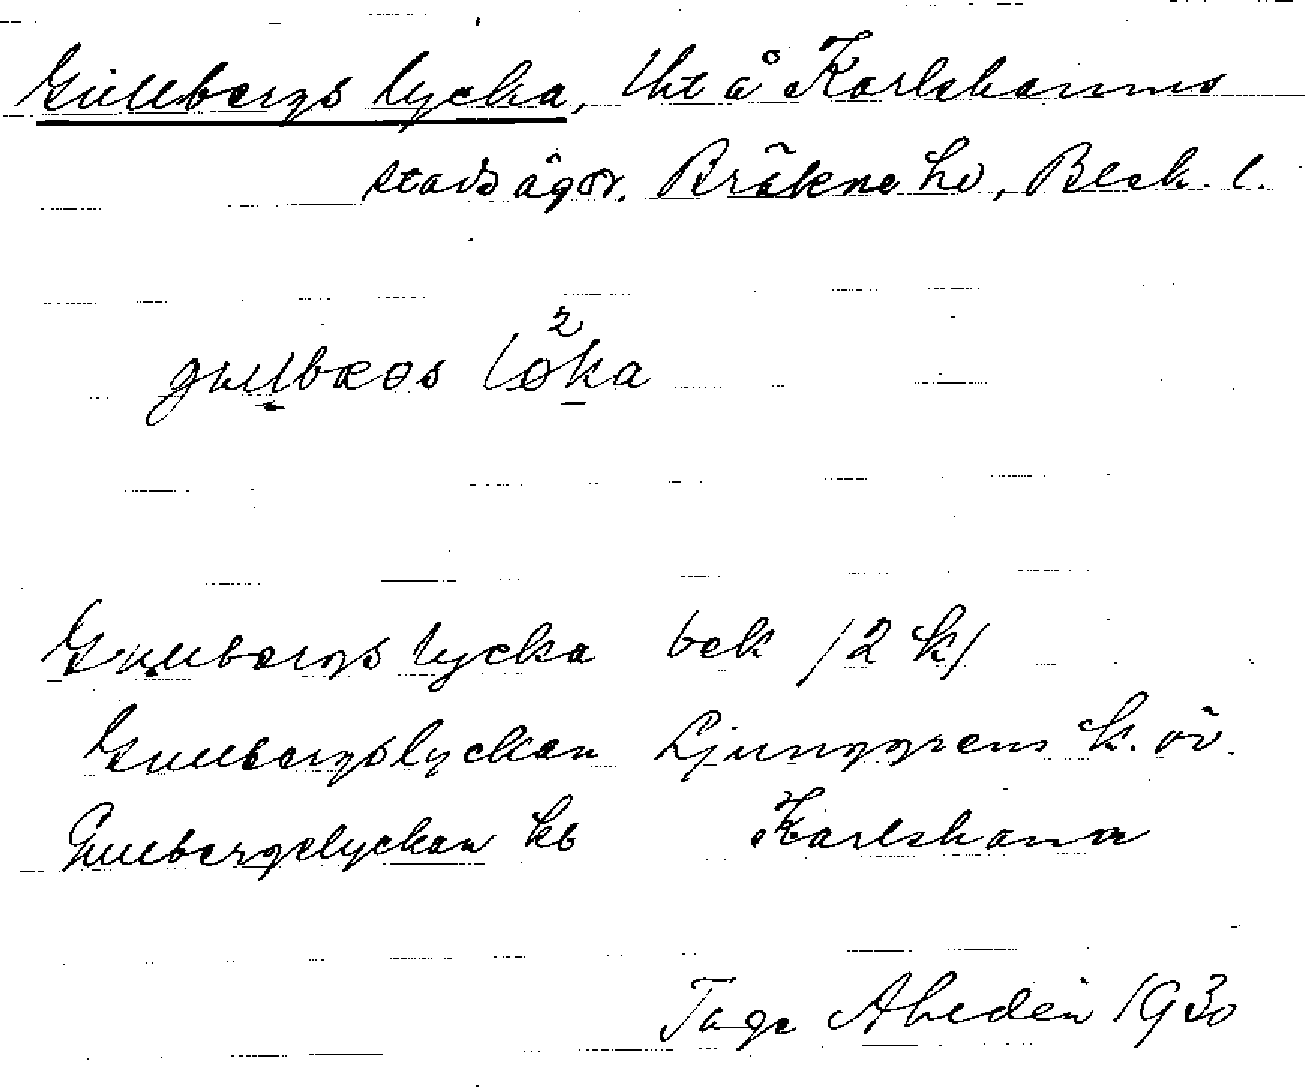 Gullbergs lycka, lht å Karlshamns
stadsägor. Bräkne hd, Blek. l.
Gullbergs lycka bek /2 k/
Gullbergslyckan Ljunggrens k. öv.
Gullbergslyckan kb Karlshamn
Tage Ahldén 1930